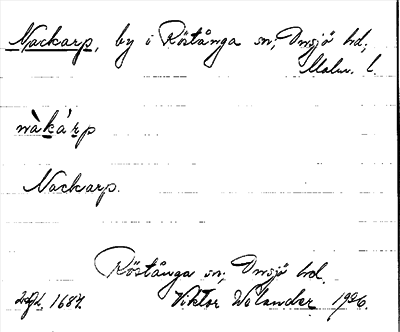 Nackarp, by i Röstånga sn, Onsjö hd,
Malm. l.
nàkárp
Nackarp.
Röstånga sn, Onsjö hd.
1687. Viktor Welander 1926.